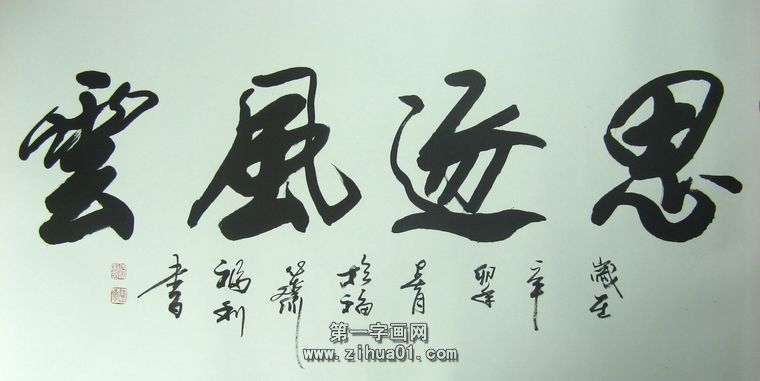 思逸風雲
歲在辛卯年春月於福齋福利書
第一字画网
www.zihua01.com